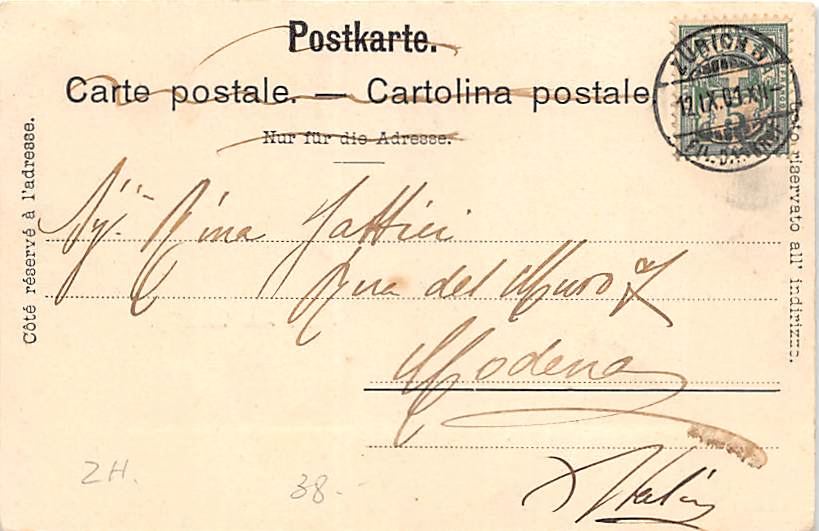 Postkarte.
Carte postale. — Cartolina postale
Nur für die Adresse.
Côté réservé à l'adresse.
Lato riservato all' indirizzo.
ZÜRICH
12.IX.01.XII-
5
Rina
del Muro 7
Modena
Italia
ZH.
38.-